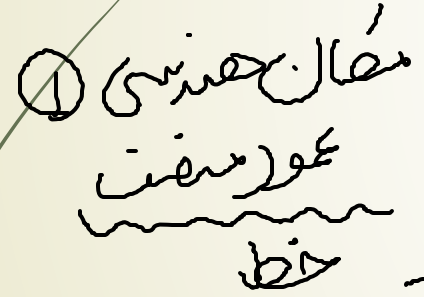 مکان هندسی ①
عمود منصف
خط